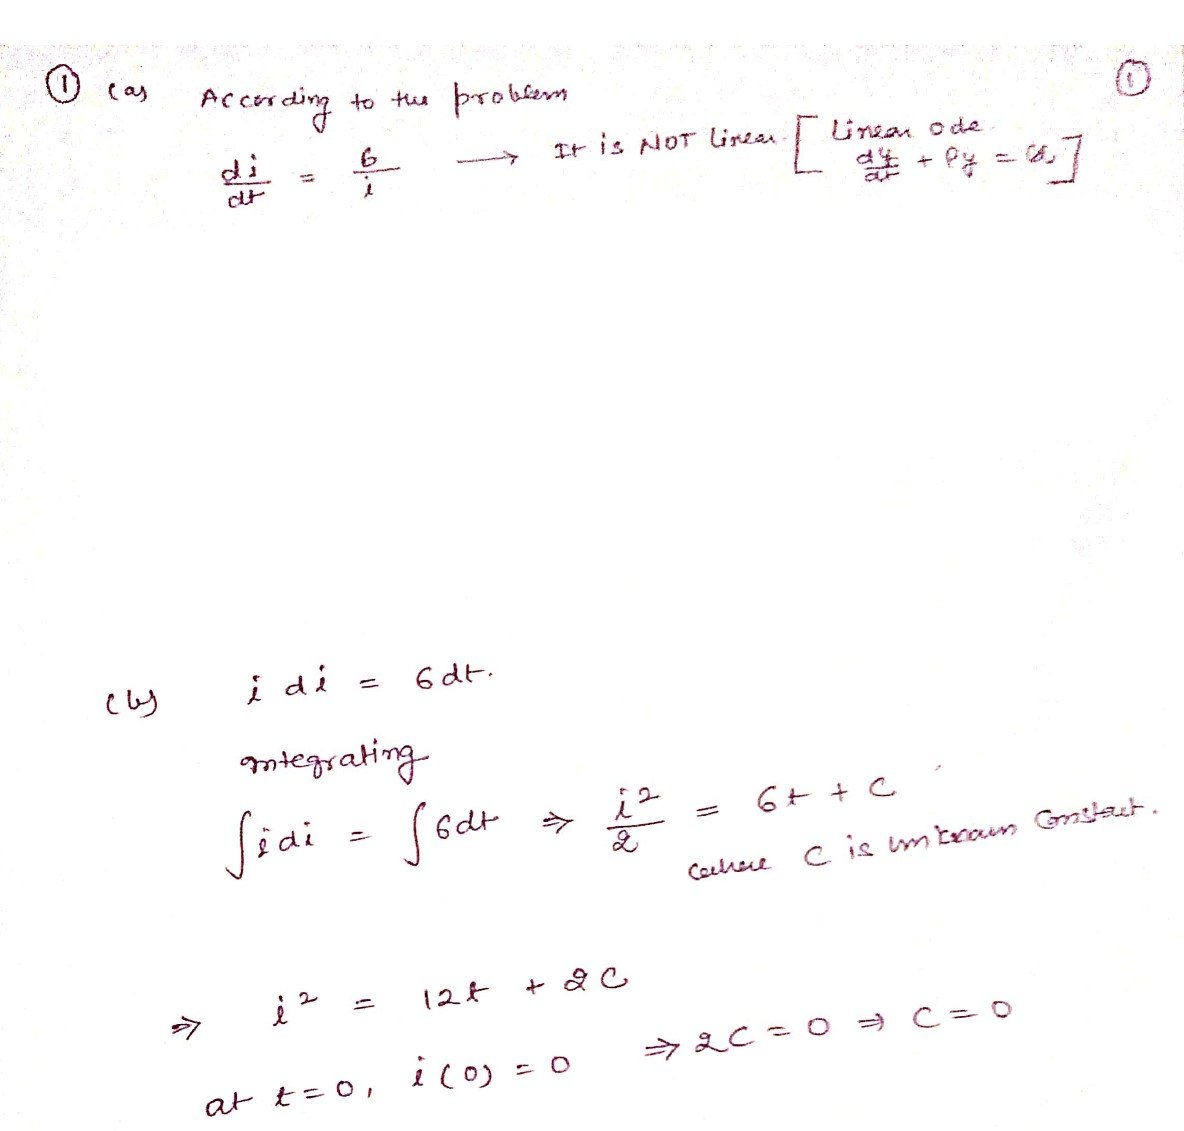 ① (a) According to the problem ①
di/dt = 6/i → It is NOT Linear. [Linear ode. dy/dt + Py = Q]
(b) i di = 6dt.
Integrating
∫i di = ∫6dt ⇒ i²/2 = 6t + C
where C is unknown Constant.
⇒ i² = 12t + 2C
at t=0, i(0) = 0 ⇒ 2C = 0 ⇒ C = 0